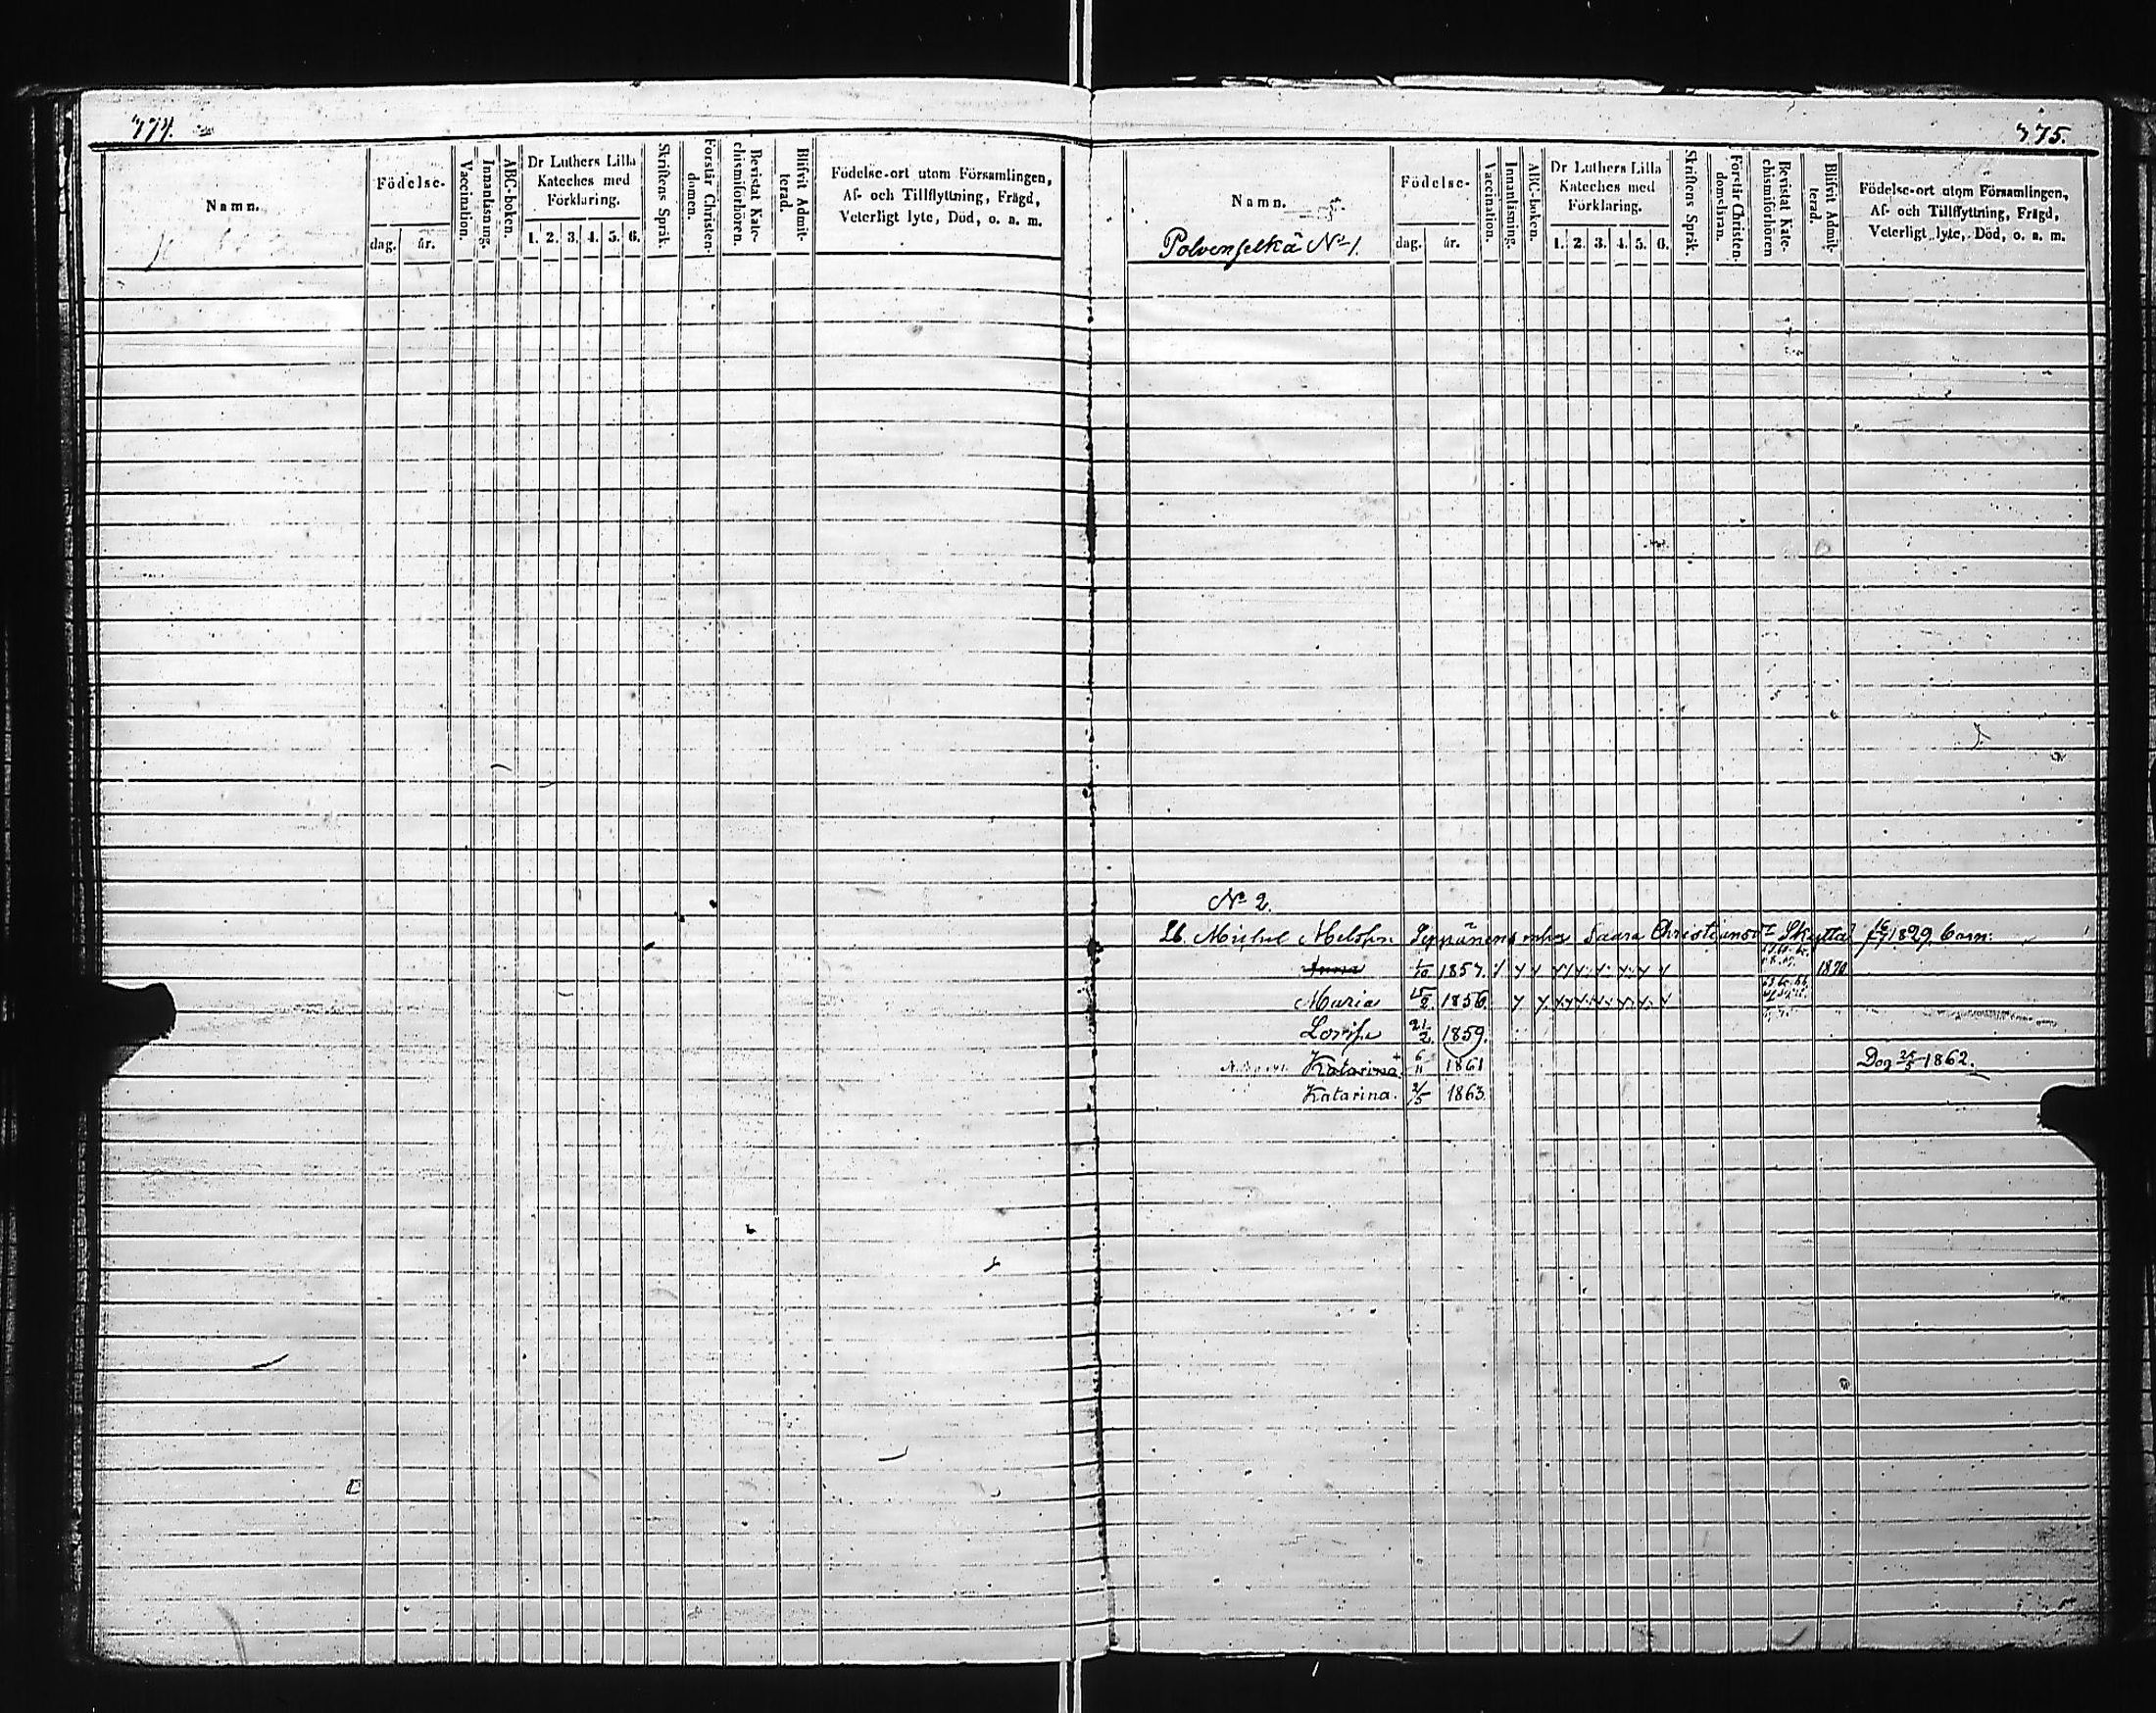 774.
Namn.
Födelse-
dag. år.
Vaccination.
Innanläsning.
ABC-boken.
Dr Luthers Lilla
Kateches med
Förklaring.
1. 2. 3. 4. 5. 6.
Skriftens Språk.
Förstår Christen-
domen.
Bevistat Kate-
chismiförhören.
Blifvit Admit-
terad.
Födelse-ort utom Församlingen,
Af- och Tillflyttning, Frägd,
Veterligt lyte, Död, o. a. m.
775.
Namn.
Polvenselkä No 1.
Födelse-
dag. år.
Vaccination.
Innanläsning.
ABC-boken.
Dr Luthers Lilla
Kateches med
Förklaring.
1. 2. 3. 4. 5. 6.
Skriftens Språk.
Förstår Christen-
domsläran.
Bevistat Kate-
chismiförhören
Blifvit Admit-
terad.
Födelse-ort utom Församlingen,
Af- och Tillflyttning, Frägd,
Veterligt lyte, Död, o. a. m.
No 2.
Seppänens enka Saara Christiansdr 1829. barn:
Anna 1/10 1857. 1870
Maria 15/2 1856.
Lovisa 21/2 1859.
Katarina 6/11 1861 Dog 1862.
Katarina. 2/5 1863.